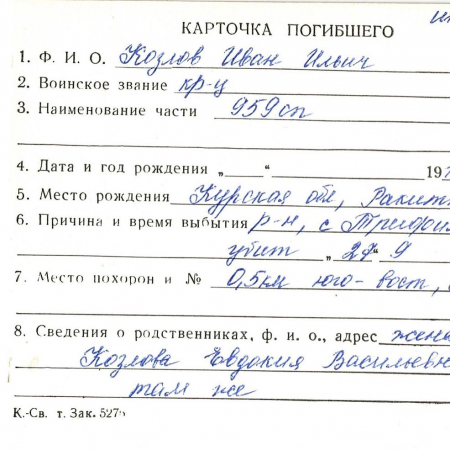 КАРТОЧКА ПОГИБШЕГО
1. Ф. И. О. Козлов Иван Ильич
2. Воинское звание кр-ц
3. Наименование части 959сп
4. Дата и год рождения „ “ 19
5. Место рождения Курская обл, Ракит
6. Причина и время выбытия р-н, с Трефил
убит „27“ 9
7. Место похорон и № 0,5км юго-вост,
8. Сведения о родственниках, ф. и. о., адрес жена
Козлова Евдокия Васильевн
там же
К.-Св. т. Зак. 527